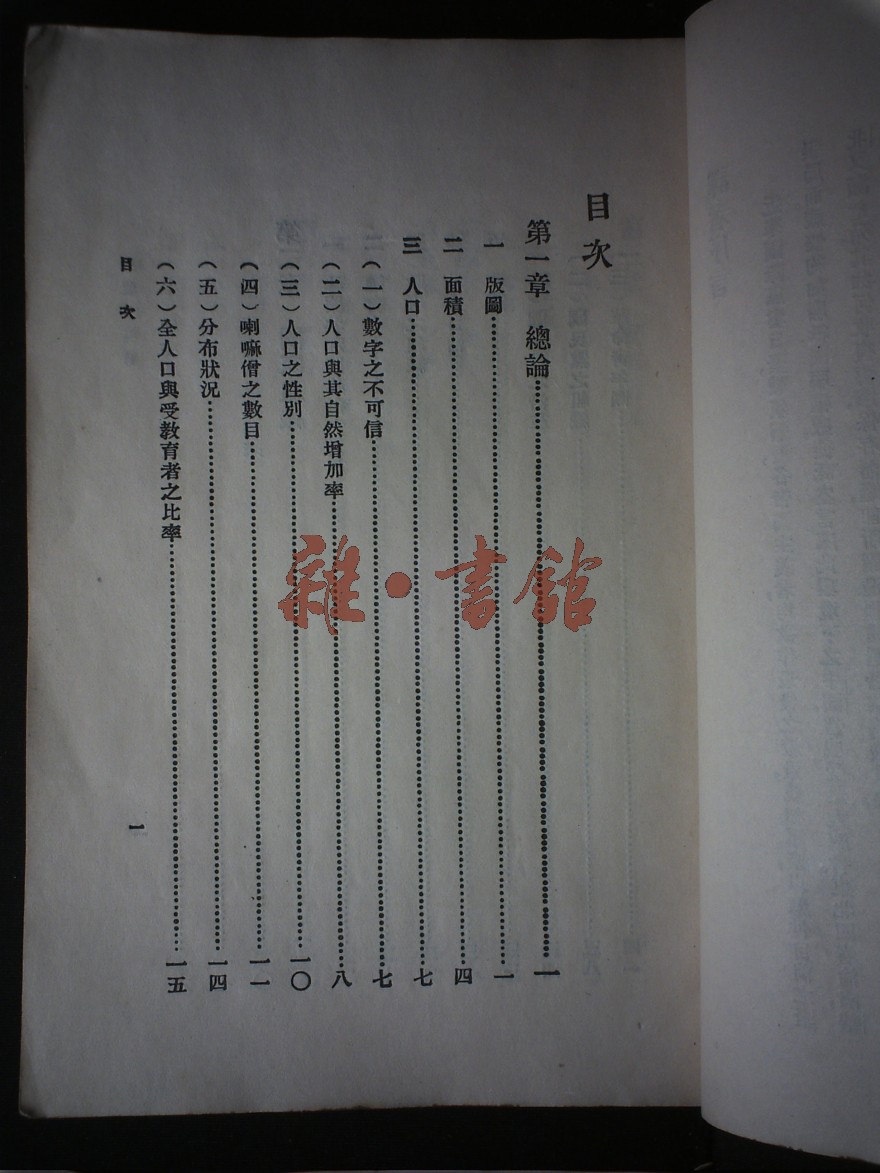 目次
第一章 總論……一
一 版圖……一
二 面積……四
三 人口……七
(一)數字之不可信……七
(二)人口與其自然增加率……八
(三)人口之性別……一〇
(四)喇嘛僧之數目……一一
(五)分布狀況……一四
(六)全人口與受教育者之比率……一五
目次
一
雜·書館